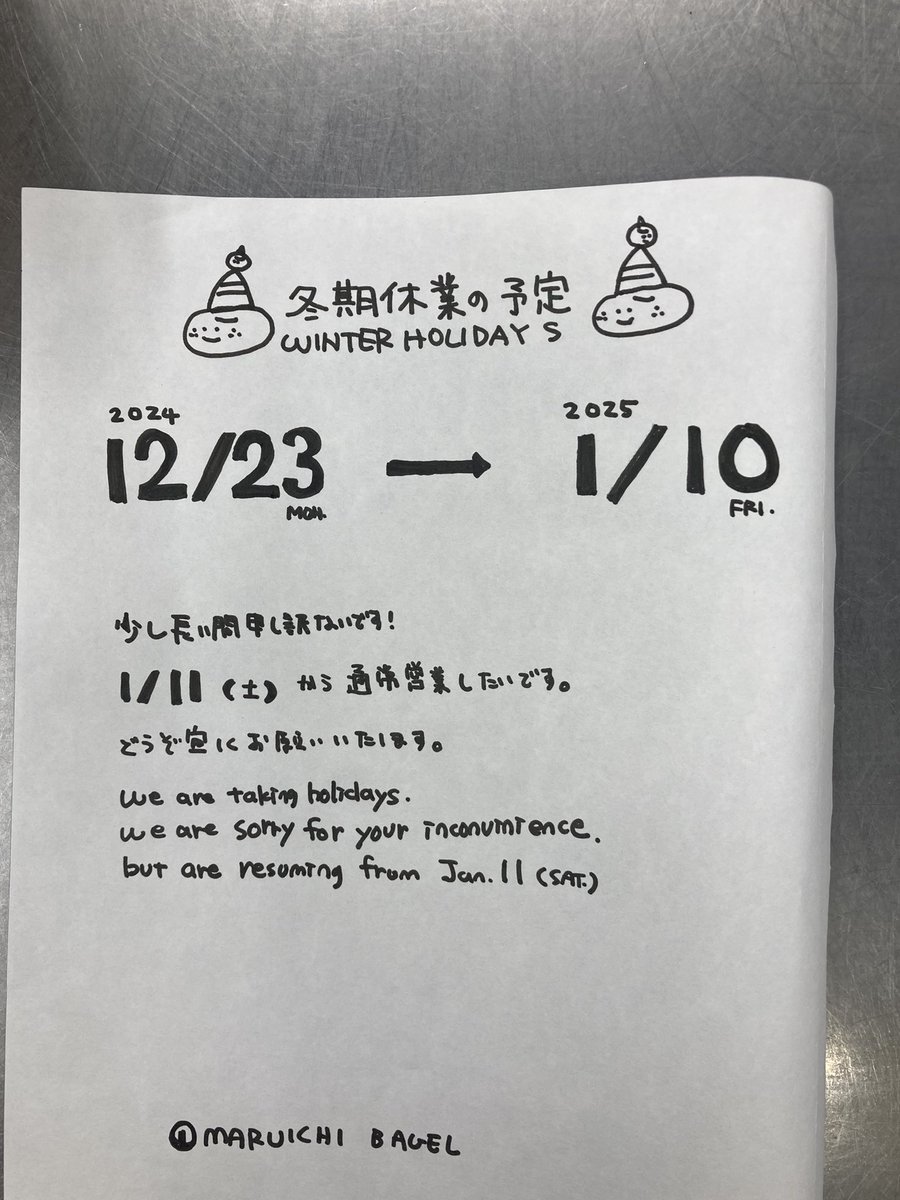 冬期休業の予定
WINTER HOLIDAYS
2024
12/23
MON.
→
2025
1/10
FRI.
少し長い間申し訳ないです!
1/11(土)から通常営業したいです。
どうぞ宜しくお願いいたします。
we are taking holidays.
we are sorry for your inconumience.
but are resuming from Jan.11(SAT.)
①MARUICHI BAGEL